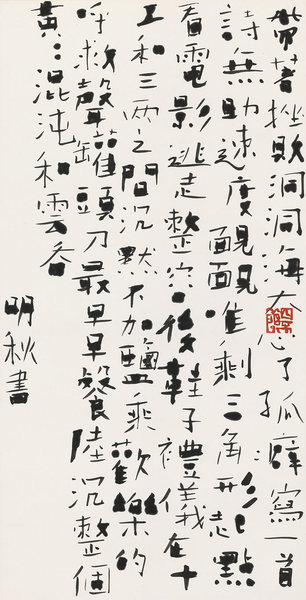 帶著挫敗洞洞海大了孤癖寫一首
詩無助速度靦唯剩三角形點
看電影逃走整後鞋子禮我在十
工和三兩之間沉默不加鹽乘舊歡樂的
呼救聲罐頭刀最早早餐陸沉整個
黃混沌和雲谷
明秋書